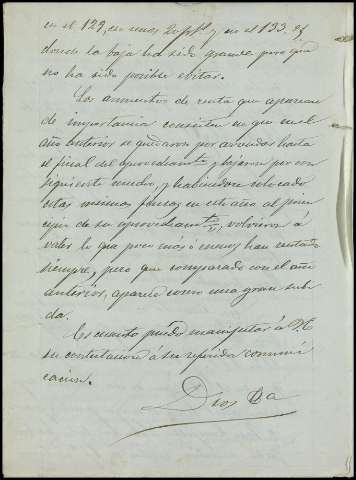 en el 129, en unos 20 pfs y en el 133. es
donde la baja ha sido grande pero que
no ha sido posible evitar.
Los aumentos de renta que aparecen
de importancia consisten en que en el
año anterior se quedaron por arrendar hasta
el final del aprovechamiento y bajaron por con
siguiente mucho, y habiendose colocado
estas mismas fincas en este año al prin
cipio de su aprovechamto, volvieron á
valer lo que poco mas ó menos han rentado
siempre, pero que comparado con el año
anterior, aparece como una gran subi
da.
Es cuanto puedo manifestar á V.E.
en contestacion á su referida comuni
cacion.
Dios